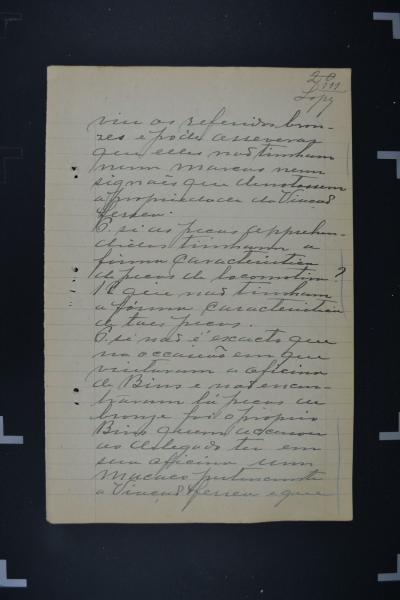 20
Lopz
viu os referidos bron-
zes e póde asseverar
que elles não tinham
nem marcas nem
signaes que denotassem
a propriedade da Viação
Ferrea.
P. si as peças apprehen-
didas tinham a
fórma caracteristica
de peças de locomotiva?
R. que não tinham
a fórma caracteristica
de taes peças.
P. si não é exacto que
na occasião em que
visitaram a officina
de Bins e não encon-
traram lá peças de
bronze foi o proprio
Bins quem accusou
ao delegado ter em
sua officina um
macaco pertencente
a Viação Ferrea e que